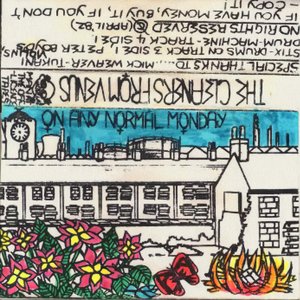 SPECIAL THANKS TO ... MICK
STIX-DRUMS ON TRACK 3 SIDE 1. PETER
DRUM-MACHINE-TRACK 4 SIDE 1
NO RIGHTS RESERVED (APRIL '82)
IF YOU HAVE MONEY, BUY IT, IF YOU DON'T
COPY IT
THE CLEANERS FROM VENUS
ON ANY NORMAL MONDAY